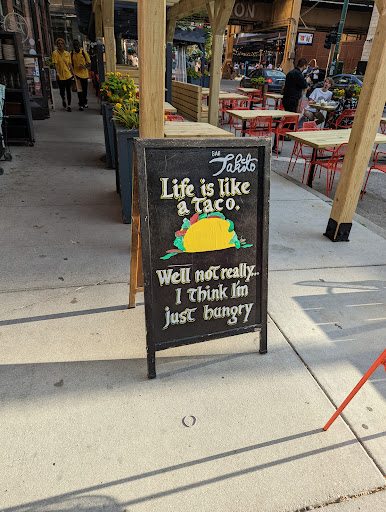 ON
BAR
Takito
Life is like
a taco.
Well not really..
I think I'm
just hungry